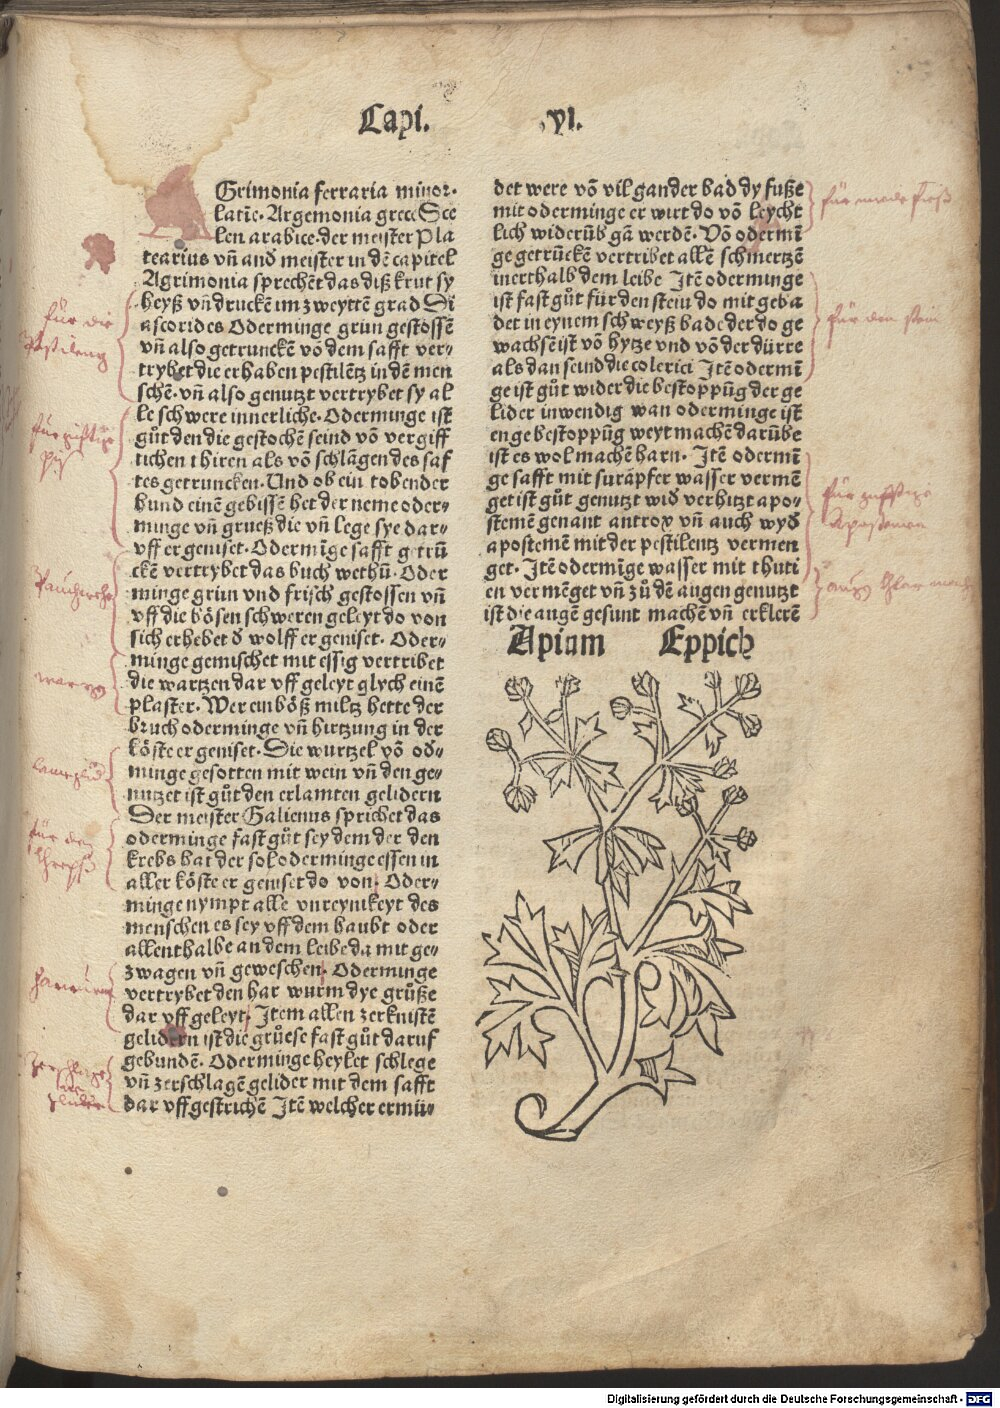 Capi. .VI.
Grimonia ferraria minor.
latīe. Argemonia grece Sce
len arabice. der meister Pla
tearius vn̄ and meister in dē capitel
Agrimonia sprechēt das diß krut sy
heyß vn̄ druckē im zweyttē grad Di
ascorides Oderminge grün gestossē
vn̄ also getrunckē vō dem safft ver⸗
trybet die erhaben pestilētz in dē men
schē. vn̄ also genutzt vertrybet sy al
le schwere innerliche. Oderminge ist
gůt den die gestochē seind vō vergiff
tichen thiren als vō schlāgen des saf
tes getruncken. Und ob ein tobender
hund einē gebissē het der neme oder⸗
minge vn̄ grueß die vn̄ lege sye dar⸗
vff er geniset. Odermīge safft getrū
ckē vertrybet das buch wethū. Oder
minge grün vnd frisch gestossen vn̄
vff die bösen schweren geleyt do von
sich erhebet d̄ wolff er geniset. Oder⸗
minge gemischet mit essig vertribet
die wartzen dar vff geleyt glych einē
plaster. Wer ein böß miltz hette der
bruch oderminge vn̄ hirtzung in der
köste er geniset. Die wurtzel vō od̄⸗
minge gesotten mit wein vn̄ den ge⸗
nutzet ist gůt den erlamten gelidern
Der meister Galienus sprichet das
oderminge fast gůt sey dem der den
krebs hat der sol oderminge essen in
aller köste er geniset do von. Oder⸗
minge nympt alle vnreynikeyt des
menschen es sey vff dem haubt oder
allenthalbe an dem leibe da mit ge⸗
zwagen vn̄ geweschen. Oderminge
vertrybet den har wurm dye grůße
dar vff geleyt. Item allen zerknistē
gelidern ist die grůese fast gůt daruf
gebundē. Oderminge heylet schlege
vn̄ zerschlagē gelider mit dem safft
dar vff gestrichē Itē welcher ermü⸗
det were vō vil gan der bad dy fuße
mit oderminge er wirt do vō leycht
lich widerüb gā werdē. Vō odermī
ge getrückē vertribet allē schmertzē
inerthalb dem leibe Itē oderminge
ist fast gůt für den stein do mit geba
det in eynem schweyß bade der do ge
wachsē ist vō hytze vnd vō der dürre
als dan seind die colerici Itē odermī
ge ist gůt wider die bestoppūg der ge
lider inwendig wan oderminge ist
enge bestoppūg weyt machē darübe
ist es wol machē harn. Itē odermī
ge safft mit surāpfer wasser vermē
get ist gůt genutzt wid̄ verhitzt apo⸗
stemē genant antrox vn̄ auch wyd̄
apostemē mit der pestilentz vermen
get. Itē odermīge wasser mit thuti
en vermēget vn̄ zů dē augen genutzt
ist die augē gesunt machē vn̄ erklerē
Apium Eppich
für die
Pestilentz
für den stein
für den
Digitalisierung gefördert durch die Deutsche Forschungsgemeinschaft - DFG